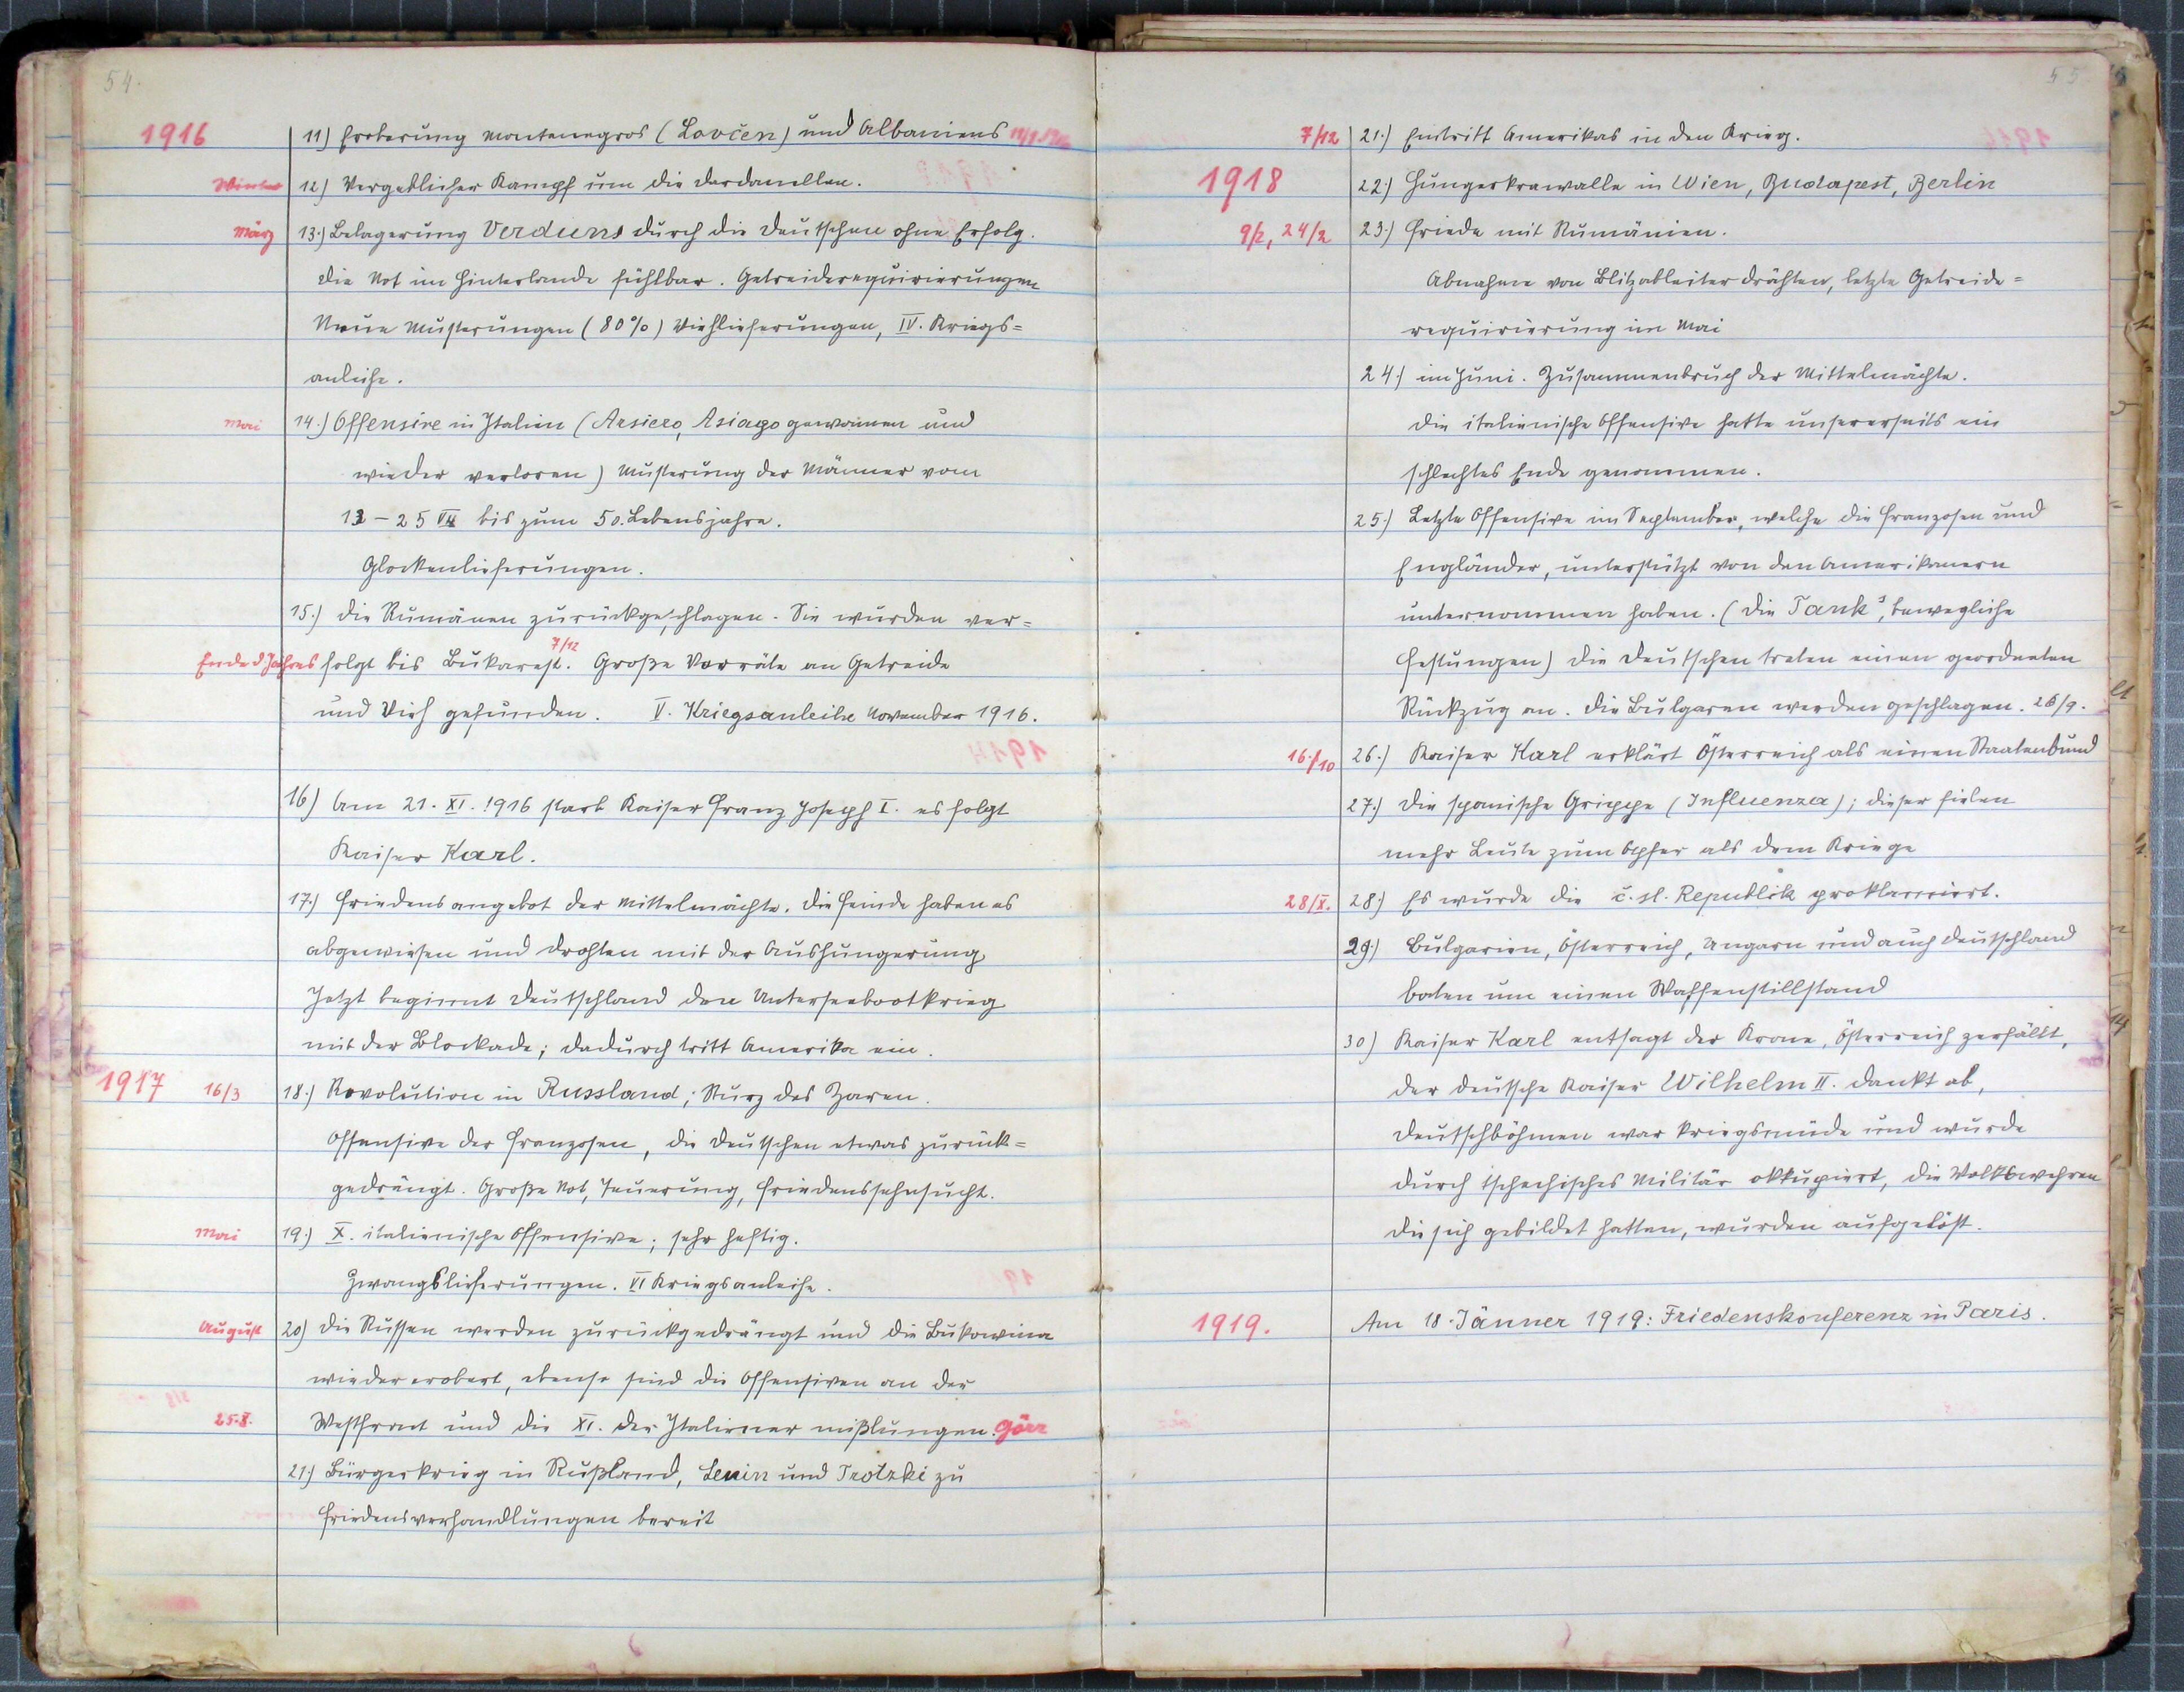 54.
1916 11) Eroberung Montenegros (Lovčen) und Albaniens
Winter 12) Vergeblicher Kampf um die Dardanellen.
März 13.) Belagerung Verduns durch die Deutschen ohne Erfolg.
Die Not im Hinterlande fühlbar. Getreiderequirierungen
Neue Musterungen (80%) Viehlieferungen, IV. Kriegs=
anleihe.
Mai 14.) Offensive in Italien (Arsiero, Asiago gewonnen und
wieder verloren) Musterung der Männer vom
bis zum 50. Lebensjahre.
Glockenlieferungen.
15.) Die Rumänen zurückgeschlagen. Sie wurden ver=
7/12
Ende d. Jahres folgt bis Bukarest. Große Vorräte an Getreide
und Vieh gefunden. V. Kriegsanleihe November 1916.
16) Am 21. XI. 1916 starb Kaiser Franz Joseph I. es folgt
Kaiser Karl.
17.) Friedensangebot der Mittelmächte. Die Feinde haben es
abgewiesen und drohten mit der Aushungerung
Jetzt beginnt Deutschland den Unterseebootkrieg
mit der Blockade; dadurch tritt Amerika ein.
1917 16/3 18.) Revolution in Russland; Sturz des Zaren.
Offensive der Franzosen, die Deutschen etwas zurück=
gedrängt. Große Not, Teuerung, Friedenssehnsucht.
Mai 19.) X. italienische Offensive; sehr heftig.
Zwangslieferungen. VI Kriegsanleihe.
August 20) Die Russen werden zurückgedrängt und die Bukowina
wieder erobert, ebenso sind die Offensiven an der
25.8. Westfront und die XI. der Italiener mißlungen. Görz
21.) Bürgerkrieg in Rußland, Lenin und Trotzki zu
Friedensverhandlungen bereit
55
7/12 21.) Eintritt Amerikas in den Krieg.
1918 22.) Hungerkrawalle in Wien, Budapest, Berlin
9/2, 24/2 23.) Friede mit Rumänien.
Abnahme von Blitzableiterdrähten, letzte Getreide=
requirierung im Mai
24.) im Juni. Zusammenbruch der Mittelmächte.
Die italienische Offensive hatte unsererseits ein
schlechtes Ende genommen.
25.) Letzte Offensive im September, welche die Franzosen und
Engländer, unterstützt von den Amerikanern
unternommen haben. (Die Tank's, bewegliche
Festungen) Die Deutschen treten einen geordneten
Rückzug an. Die Bulgaren werden geschlagen. 26/9.
16./10 26.) Kaiser Karl erklärt Österreich als einen Staatenbund
27.) Die spanische Grippe (Influenza); dieser fielen
mehr Leute zum Opfer als dem Kriege
28/X. 28.) Es wurde die č. sl. Republik proklamiert.
29.) Bulgarien, Österreich, Ungarn und auch Deutschland
baten um einen Waffenstillstand
30) Kaiser Karl entsagt der Krone, Österreich zerfällt,
der deutsche Kaiser Wilhelm II. dankt ab,
Deutschböhmen war kriegsmüde und wurde
durch tschechisches Militär okkupiert, die Volkswehren
die sich gebildet hatten, wurden aufgelöst.
1919. Am 18. Jänner 1919: Friedenskonferenz in Paris.